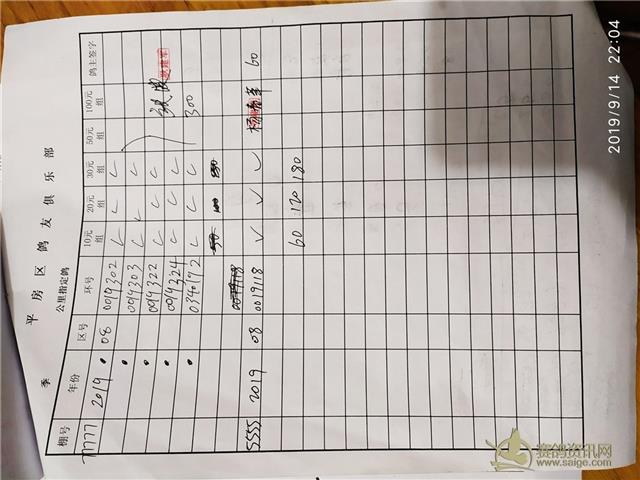 季 平房区鸽友俱乐部
公里指定鸽
棚号 年份 区号 环号 10元组 20元组 30元组 50元组 100元组 鸽主签字
77777 2019 08 0019302 ✓ ✓ ✓
0019303 ✓ ✓ ✓
0019322 ✓ ✓ ✓
0019324 ✓ ✓ ✓
0340172 ✓ ✓ ✓ 300
5555 2019 08 0019118 ✓ ✓ ✓ 60
60 120 180
2019/9/14 22:04
赛鸽资讯网
www.saige.com